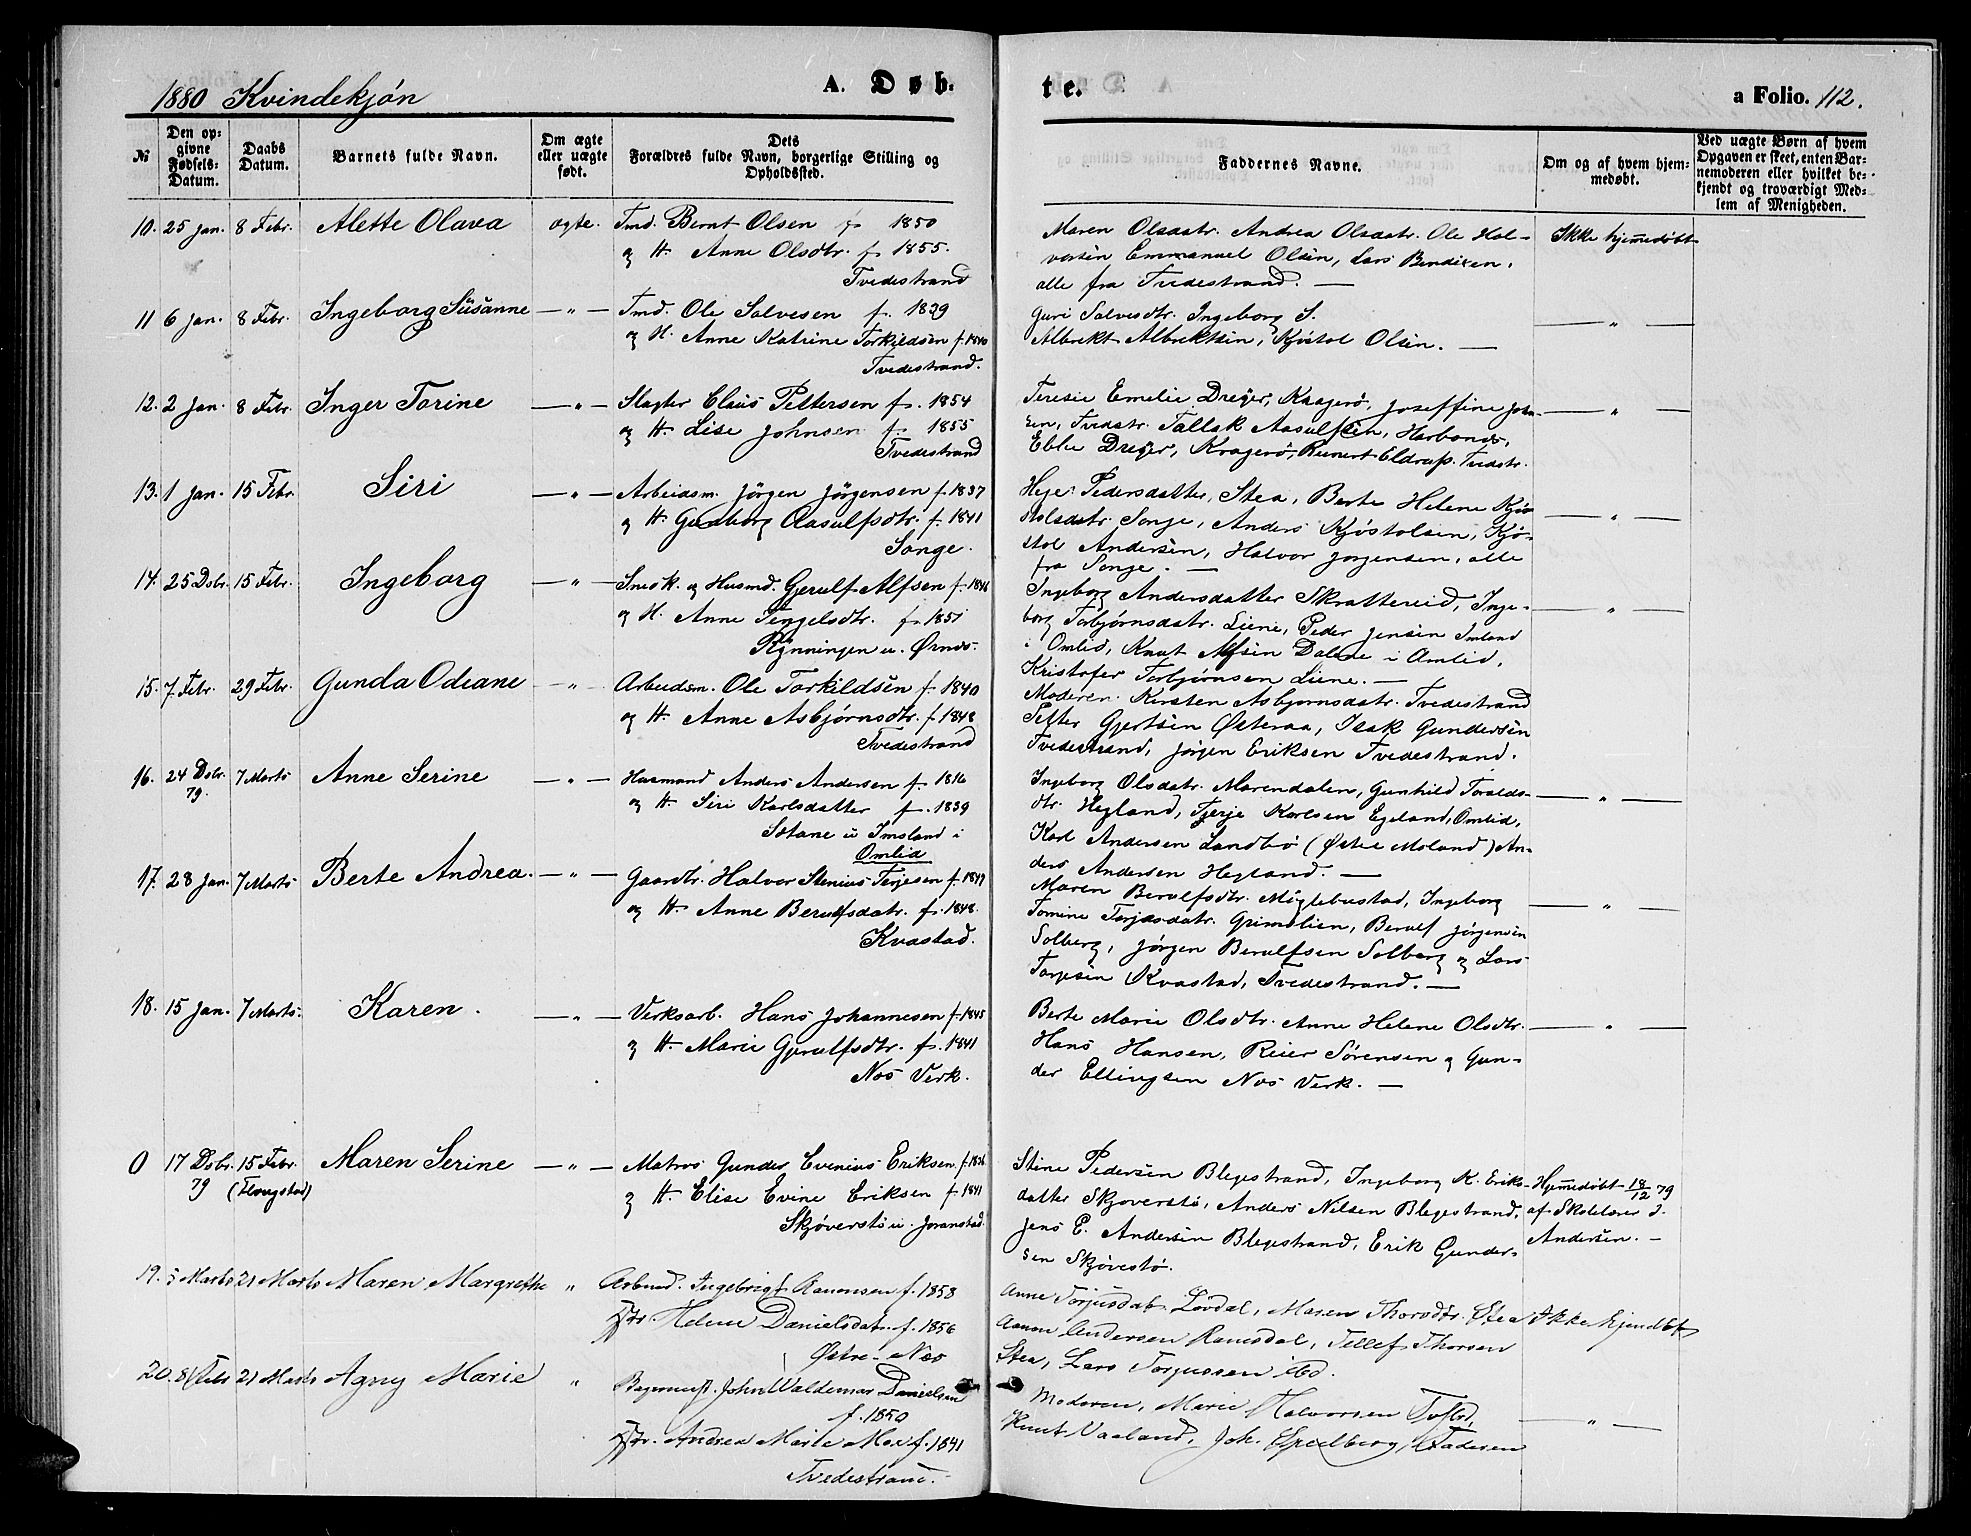 1880 Kvindekjön
A. Døb-
te.
a Folio. 112.
№
Den op-
givne
Fødsels-
Datum.
Daabs
Datum.
Barnets fulde Navn.
Om ægte
eller uægte
født.
Dets
Forældres fulde Navn, borgerlige Stilling og
Opholdssted.
Faddernes Navne.
Om og af hvem hjem-
medøbt.
Ved uægte Børn af hvem
Opgaven er skeet, enten Bar-
nemoderen eller hvilket be-
kjendt og troværdigt Med-
lem af Menigheden.
10. 25 Jan. 8 Febr. Alette Olava ægte. Tmd. Bernt Olsen f. 1850
og H. Anne Olsdtr. f. 1855.
Tvedestrand
Maren Olsdatr. Andrea Olsdatr. Ole Hal-
vorsen Emmanuel Olsen, Lars Bendixen,
alle fra Tvedestrand. —
Ikke hjemmedøbt
11 6 Jan. 8 Febr. Ingeborg Susanne — " — Tmd. Ole Salvesen f. 1839
og H. Anne Katrine Torkildsen f. 1840
Tvedestrand.
Guri Salvesdtr. Ingeborg S.
Albrekt Albrektsen, Kjöstol Olsen. —
— " —
12. 2 Jan. 8 Febr. Inger Torine — " — Slagter Claus Pettersen f. 1854
og H. Lise Johnsen f. 1855
Tvedestrand
Teresie Emelie Dreyer, Kragerö, Joseffine John-
sen, Tvedstr. Tallak Aasulfsen,
Eblie Dreyer, Kragerö, Reinert Eldrup. Tvedstr.
— " —
13. 1 Jan. 15 Febr. Siri — " — Arbeidsm. Jörgen Jörgensen f. 1837
og H. Gunborg Aasulfsdtr. f. 1841
Songe.
Hege Pedersdatter, Stea, Berte Helene Kjö-
stolsdatr. Songe, Anders Kjöstolsen, Kjö-
stol Andersen, Halvor Jörgensen, alle
fra Songe. —
— " —
14. 25 Dsbr. 15 Febr. Ingeborg — " — Smed k. og Husmd. Gjerulf Alfsen f. 1846
og H. Anne Tengelsdtr. f. 1851
Rynningen u. Ørnes.
Ingeborg Andersdatter Skrattereid, Inge-
borg Torbjørnsdatr. Liene, Peder Jensen Imland
i Omlid, Knut Alfsen Dalene i Omlid,
Kristofer Torbjørnsen Liene. —
— " —
15. 7 Febr. 29 Febr. Gunda Odeane — " — Arbeidsm. Ole Torkildsen f. 1840
og H. Anne Asbjørnsdtr. f. 1848
Tvedestrand
Moderen. Kirsten Asbjørnsdatr. Tvedestrand
Petter Gjertsen Østeraa, Isak Gundersen
Tvedestrand, Jørgen Eriksen Tvedestrand.
16. 24 Dsbr. 7 Marts Anne Serine — " — Huusmand Anders Andersen f. 1816
79.
og H. Siri Karlsdatter f. 1839
Sötane u Imsland i
Omlid
Ingeborg Olsdatr. Marendalen, Gunhild Toralds-
dtr. Hegland, Tjerje Karlsen Egeland, Omlid,
Karl Andersen Landbö (Østre Moland) An-
ders Andersen Hegland. —
— " —
17. 28 Jan. 7 Marts Berte Andrea. — " — Gaardbr. Halvor Stenius Terjesen f. 1847
og H. Anne Berulfsdatr. f. 1848.
Kvastad.
Maren Berulfsdtr. Møglebustad, Ingeborg
Tomine Torjesdatr. Grimelien, Berulf Jørgensen
Solberg, Jørgen Berulfsen Solberg og Lars
Torjesen Kvastad, Tvedestrand. —
— " —
18. 15 Jan. 7 Marts. Karen. — " — Verksarb. Hans Johannesen f. 1845
og H. Marie Gjerulfsdtr. f. 1841
Næs Verk.
Berte Marie Olsdtr. Anne Helene Olsdtr.
Hans Hansen, Reier Sörensen og Gun-
der Ellingsen Næs Verk. —
— " —
0 17 Dsbr. 15 Febr. Maren Serine — " — Matros Gunder Evenius Eriksen f. 1836
79 (Flangstad)
og H. Elise Evine Eriksen f. 1841
Skjöverstö u. Joranstad.
Stine Pedersen Blegestrand, Ingeborg K. Eriks-
datter Skjöverstö, Anders Nilsen Blegestrand,
Jens E. Andersen Blegestrand, Erik Gunder-
sen Skjövestö.
Hjemmedöbt 18/12 79
af Skolelærer J.
Andersen. —
19. 5 Marts 21 Marts Maren Margrethe " Arbmd. Ingebrigt Aanonsen f. 1858
Hstr. Helene Danielsdat. f. 1856
Østre Næs
Anne Torjusdat. Lövdal, Maren Thorsdtr. Stea
Aanon Andersen Ramsdal, Tellef Thorsen
Stea, Lars Torjussen ibd.
Ikke hjemdbt
20. 8 Feb 21 Marts Agny Marie " Bagermest. John Valdemar Danielsen
f. 1850
Hstr. Andrea Marie Moe f. 1841
Tvedestrand.
Moderen, Marie Halvorsen
Knut Vaaland, Joh. Spedberg, Faderen
— " —